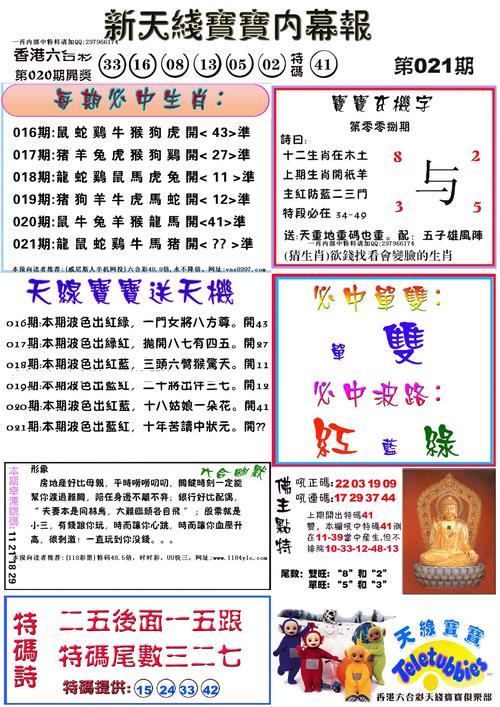 新天綫寶寶內幕報
一肖内部中特料请加QQ:297966174
香港六合彩
第020期開獎
33 16 08 13 05 02 特碼 41
第021期
每期必中生肖：
016期:鼠蛇鷄牛猴狗虎開< 43>準
017期:猪羊兔虎猴狗鷄開< 27>準
018期:龍蛇鷄鼠馬虎兔開< 11 >準
019期:猪狗羊牛虎馬蛇開< 12 >準
020期:鼠牛兔羊猴龍馬開<41>準
021期:龍鼠蛇鷄牛馬猪開< ?? >準
本报向读者推荐:(威尼斯人手机网投)六合彩48.8倍,永不降倍。网址:vns8997.com
寶寶玄機字
第零零捌期
詩曰:
十二生肖在木土
上期生肖開祇羊
主紅防藍二三門
特段必在 34-49
8 2
与
3 5
送:天重地重码也重。配：五子雄風陣
一肖内部中特料请加QQ:297966174
(猜生肖)欲錢找看會變臉的生肖
天線寶寶送天機
016期:本期波色出紅綠，一門女將八方尊。開43
017期:本期波色出綠紅，拋開八七有四五。開27
018期:本期波色出紅藍，三頭六臂猴驚天。開11
019期:本期波色出藍紅，二十將出伴三七。開12
020期:本期波色出紅藍，十八姑娘一朵花。開41
021期:本期波色出藍紅，十年苦讀中狀元。開??
必中單雙：
單 雙
必中波路：
紅 藍 綠
本期幸運號碼:11 21 18 29
形象
六合幽默
房地産好比母親，平時嘮嘮叨叨，關鍵時刻一定能
幫你渡過難關，陪在身邊不離不弃；銀行好比配偶，
“夫妻本是同林鳥，大難臨頭各自飛”；股票就是
小三，有錢跟你玩，時而讓你心跳，時而讓你血壓升
高，很刺激！一直玩到你没錢。。。
本报向读者推荐:(118彩票)特码48.5倍，时时彩，UU快三。网址:www.1184ylc.com
佛主點特
吼正碼:22 03 19 09
吼連碼:17 29 37 44
上期開出特碼41
雙，本欄吼中特碼41測
在11-39當中産生,但不
排除10-33-12-48-13
尾數：雙旺：“8”和“2”
單旺：“5”和“3”
特碼詩
二五後面一五跟
特碼尾數三二七
特碼提供: 15 24 33 42
天線寶寶
Teletubbies
香港六合彩天綫寶寶俱樂部